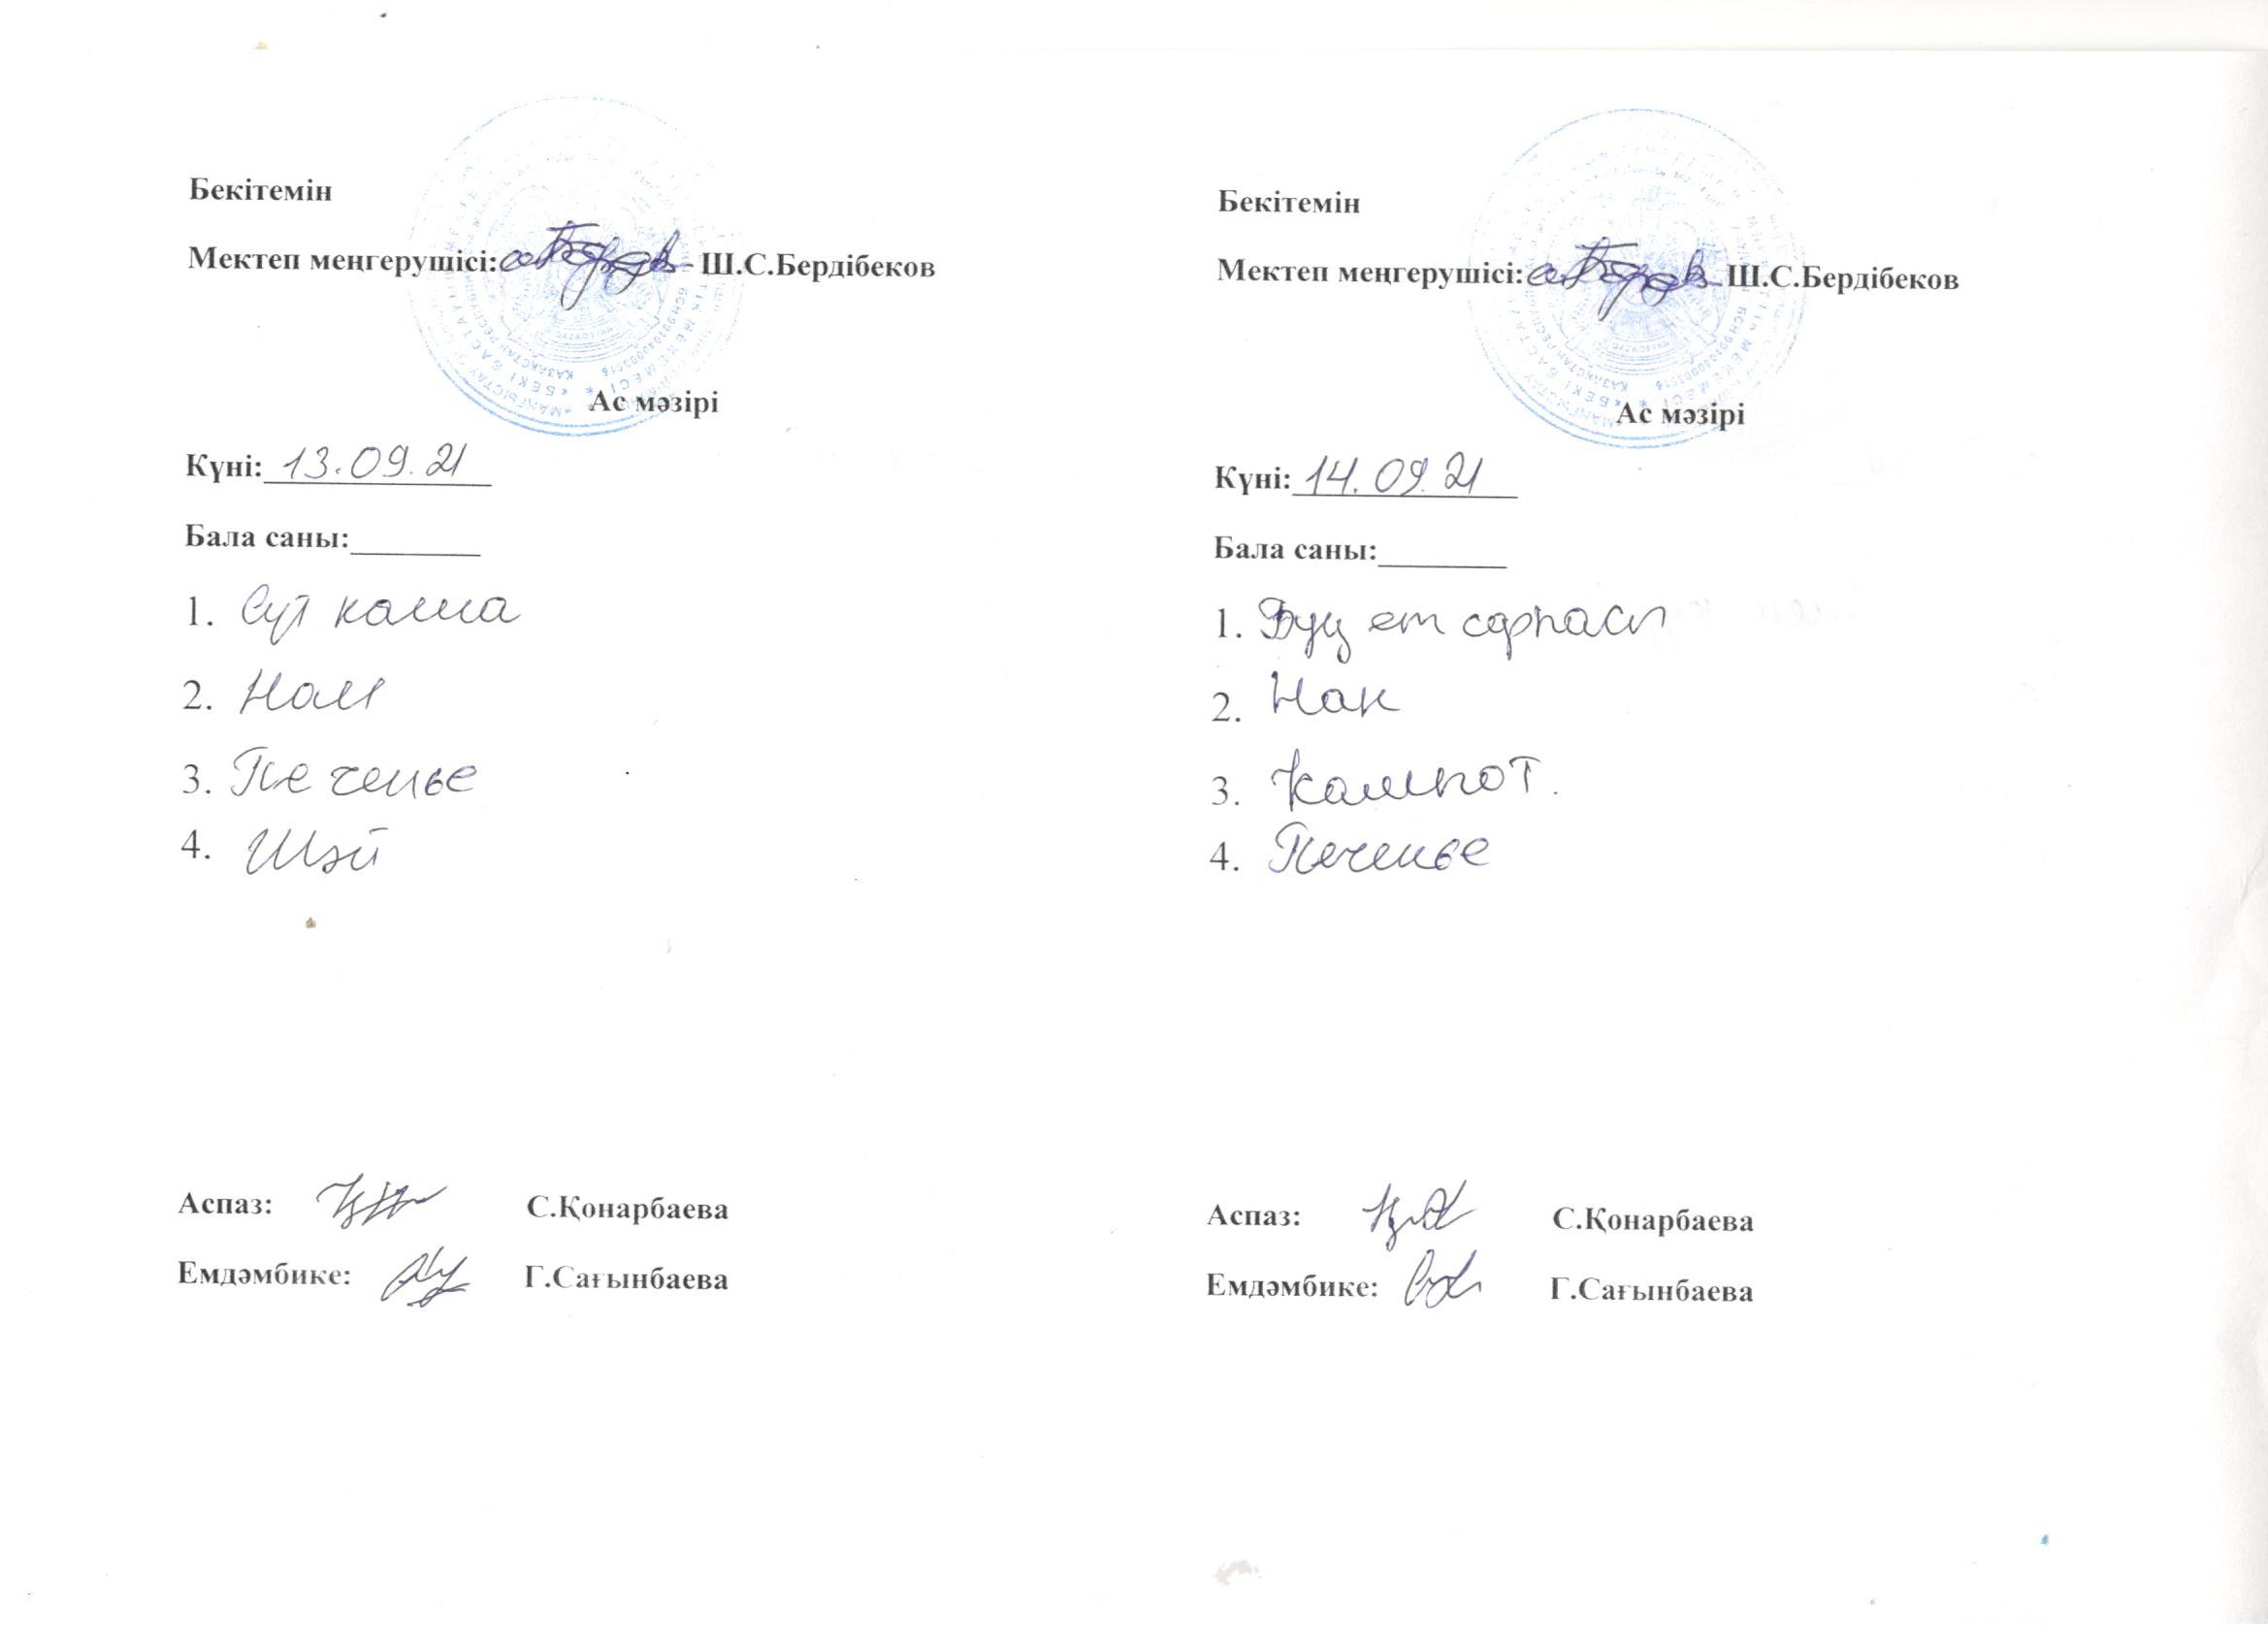 Бекітемін
Мектеп меңгерушісі: Ш.С.Бердібеков
Ас мәзірі
Күні: 13.09.21
Бала саны:
1. Сүт каша
2. Нан
3. Печенье
4. Шәй
Аспаз: С.Қонарбаева
Емдәмбике: Г.Сағынбаева
Бекітемін
Мектеп меңгерушісі: Ш.С.Бердібеков
Ас мәзірі
Күні: 14.09.21
Бала саны:
1. ет сорпасы
2. Нан
3. Кампот.
4. Печенье
Аспаз: С.Қонарбаева
Емдәмбике: Г.Сағынбаева